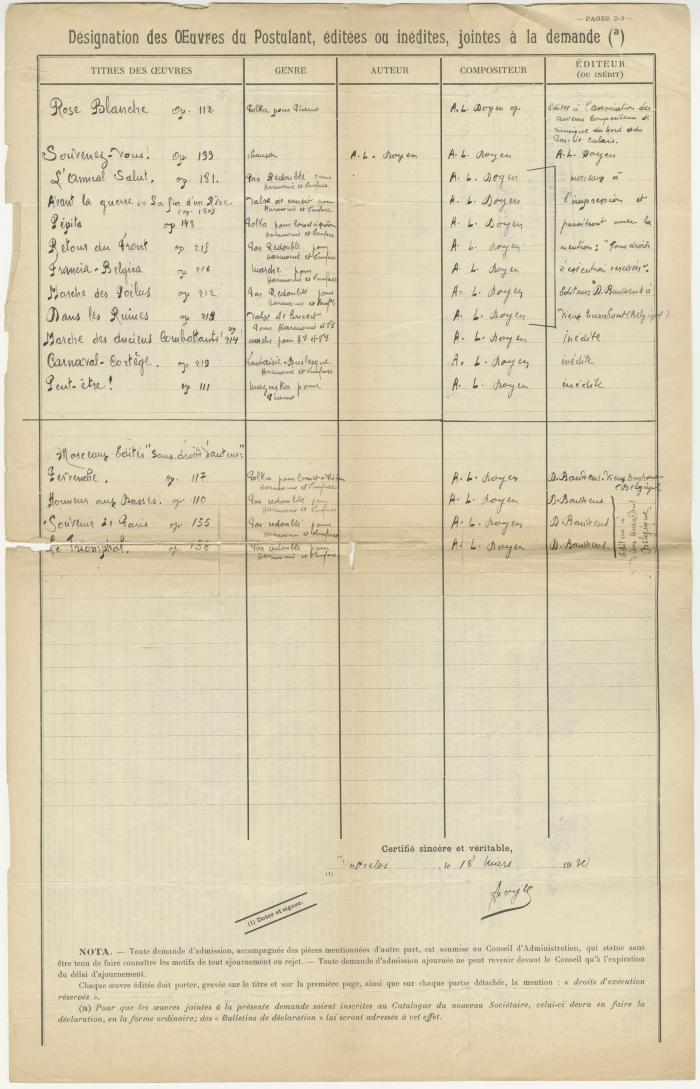 — PAGES 2-3 —
Désignation des Œuvres du Postulant, éditées ou inédites, jointes à la demande (a)
TITRES DES ŒUVRES GENRE AUTEUR COMPOSITEUR ÉDITEUR
(OU INÉDIT)
Rose Blanche op. 112 Polka pour Piano A. L. Doyen Edité à l'association des
auteurs compositeurs de
musique du Nord et du
Pas-de-Calais.
Souvenez-Vous. op 199 chanson A. L. Doyen A. L. Doyen A. L. Doyen
L'Amical Salut. op. 181. Pas Redoublé pour A. L. Doyen morceaux à
Harmonie et Fanfare
Avant la guerre ou La fin d'un Rêve Valse de concert pour A. L. Doyen l'impression et
(op. 180) Harmonie et Fanfare
Pépita op 148 Polka pour A. L. Doyen paraîtront avec la
Harmonie et Fanfare
Retour du Front op 215 Pas Redoublé pour A. L. Doyen mention: "Tous droits
Harmonie et Fanfare
Francia-Belgica op 216 Marche pour A. L. Doyen d'exécution réservés".
Harmonie et Fanfare
Marche des Poilus op 212 Pas Redoublé pour A. L. Doyen Editeur: D. Bauwens à
Harmonie et Fanfare
Dans les Ruines op 218 Valse de Concert A. L. Doyen Vieux turnhout (Belgique)
pour Harmonie et
Marche des Anciens Combattants! op 214 marche pour A. L. Doyen inédite
Carnaval-Cortège. op 219 Fantaisie-Burlesque A. L. Doyen inédite
Harmonie et Fanfare
Peut-être! op 111 mazurka pour A. L. Doyen inédite
Piano
Morceaux Edités "Sans droits d'auteur":
Pervenche. op. 117 Polka pour A. L. Doyen D. Bauwens. Vieux turnhout
Harmonie et Fanfare Belgique
Honneur aux Basses. op. 110 Pas redoublé pour A. L. Doyen D. Bauwens
Harmonie et Fanfare
Souvenir de Paris op 155 Pas redoublé pour A. L. Doyen D. Bauwens
Harmonie et Fanfare
Le Triomphal. op. 158 Pas redoublé pour A. L. Doyen D. Bauwens.
Harmonie et Fanfare
Editeur à
Vieux turnhout
Belgique
Certifié sincère et véritable,
(1) Wattrelos, le 18 Mars 1920
Doyen
(1) Dater et signer.
NOTA. — Toute demande d'admission, accompagnée des pièces mentionnées d'autre part, est soumise au Conseil d'Administration, qui statue sans
être tenu de faire connaître les motifs de tout ajournement ou rejet. — Toute demande d'admission ajournée ne peut revenir devant le Conseil qu'à l'expiration
du délai d'ajournement.
Chaque œuvre éditée doit porter, gravée sur le titre et sur la première page, ainsi que sur chaque partie détachée, la mention : « droits d'exécution
réservés ».
(a) Pour que les œuvres jointes à la présente demande soient inscrites au Catalogue du nouveau Sociétaire, celui-ci devra en faire la
déclaration, en la forme ordinaire; des « Bulletins de déclaration » lui seront adressés à cet effet.